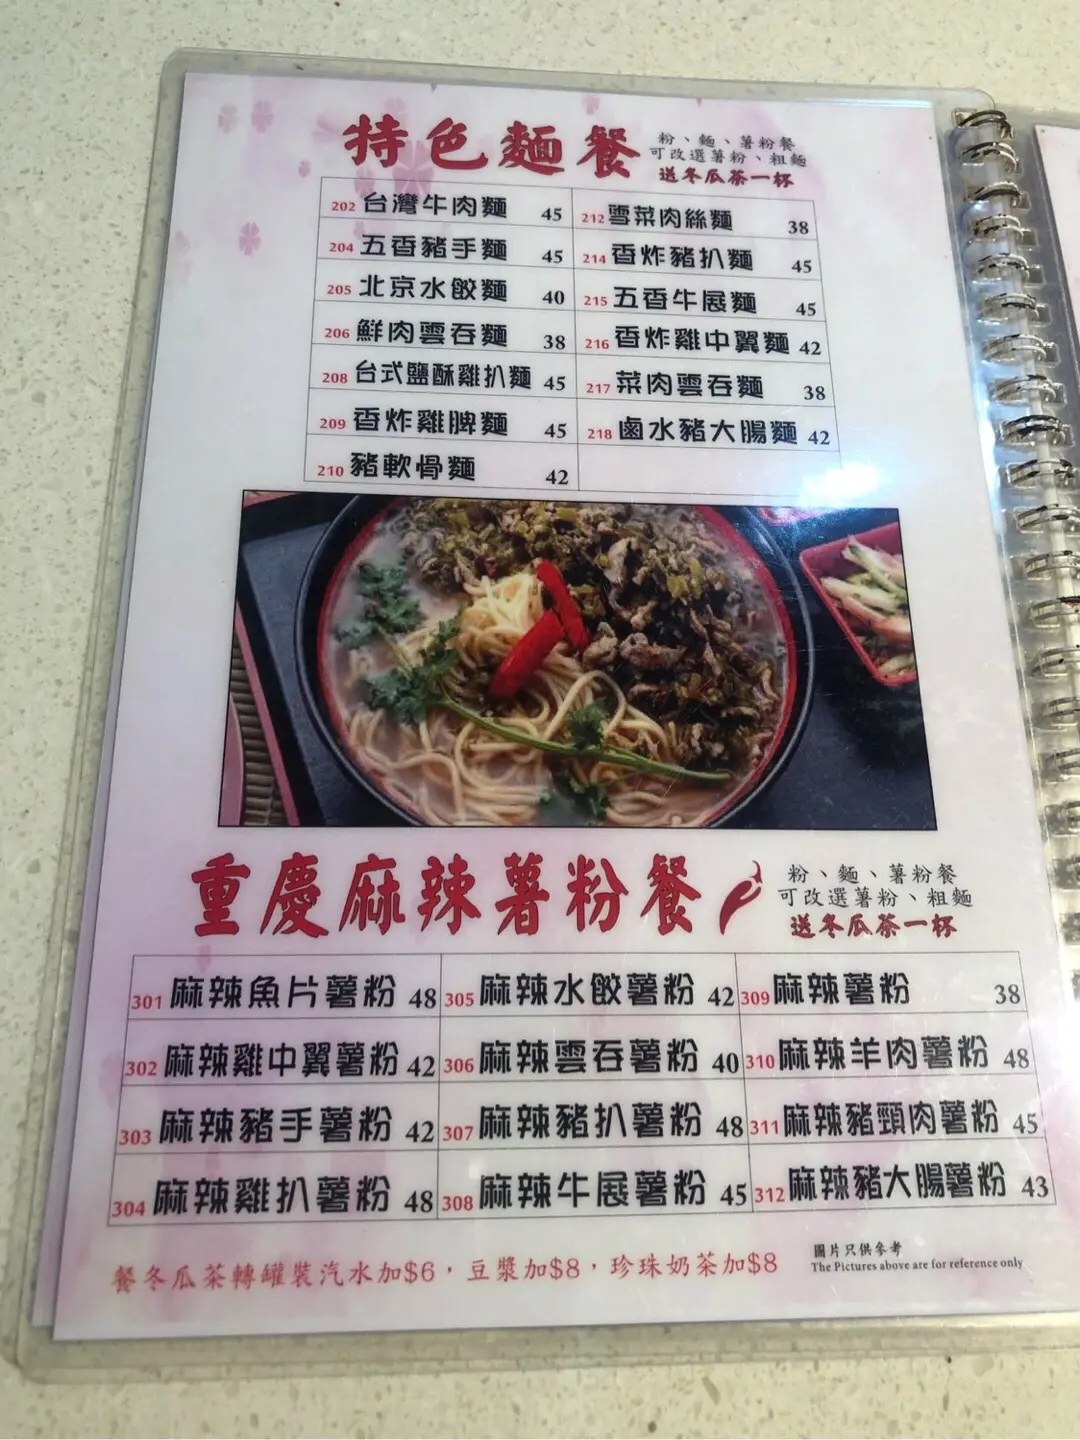 特色麵餐
粉、麵、薯粉餐
可改選薯粉、粗麵
送冬瓜茶一杯
202 台灣牛肉麵 45
212 雪菜肉絲麵 38
204 五香豬手麵 45
214 香炸豬扒麵 45
205 北京水餃麵 40
215 五香牛展麵 45
206 鮮肉雲吞麵 38
216 香炸雞中翼麵 42
208 台式鹽酥雞扒麵 45
217 菜肉雲吞麵 38
209 香炸雞脾麵 45
218 鹵水豬大腸麵 42
210 豬軟骨麵 42
重慶麻辣薯粉餐
粉、麵、薯粉餐
可改選薯粉、粗麵
送冬瓜茶一杯
301 麻辣魚片薯粉 48
305 麻辣水餃薯粉 42
309 麻辣薯粉 38
302 麻辣雞中翼薯粉 42
306 麻辣雲吞薯粉 40
310 麻辣羊肉薯粉 48
303 麻辣豬手薯粉 42
307 麻辣豬扒薯粉 48
311 麻辣豬頸肉薯粉 45
304 麻辣雞扒薯粉 48
308 麻辣牛展薯粉 45
312 麻辣豬大腸薯粉 43
餐冬瓜茶轉罐裝汽水加$6，豆漿加$8，珍珠奶茶加$8
圖片只供參考
The Pictures above are for reference only